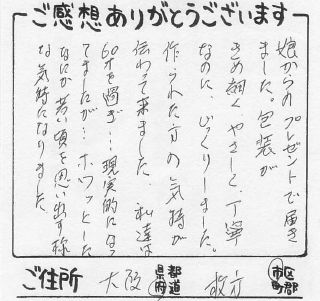 ご感想ありがとうございます
娘からのプレゼントで届き
ました。包装が
きめ細く やさしく、丁寧
なのに、びっくりしました。
作られた方の気持が
伝わって来ました。私達は
60才を過ぎ…現実的になっ
てましたが…ホワッとした
なにか若い頃を思い出す様
な気持になりました。
ご住所 大阪 都道府県 枚方 市区町郡